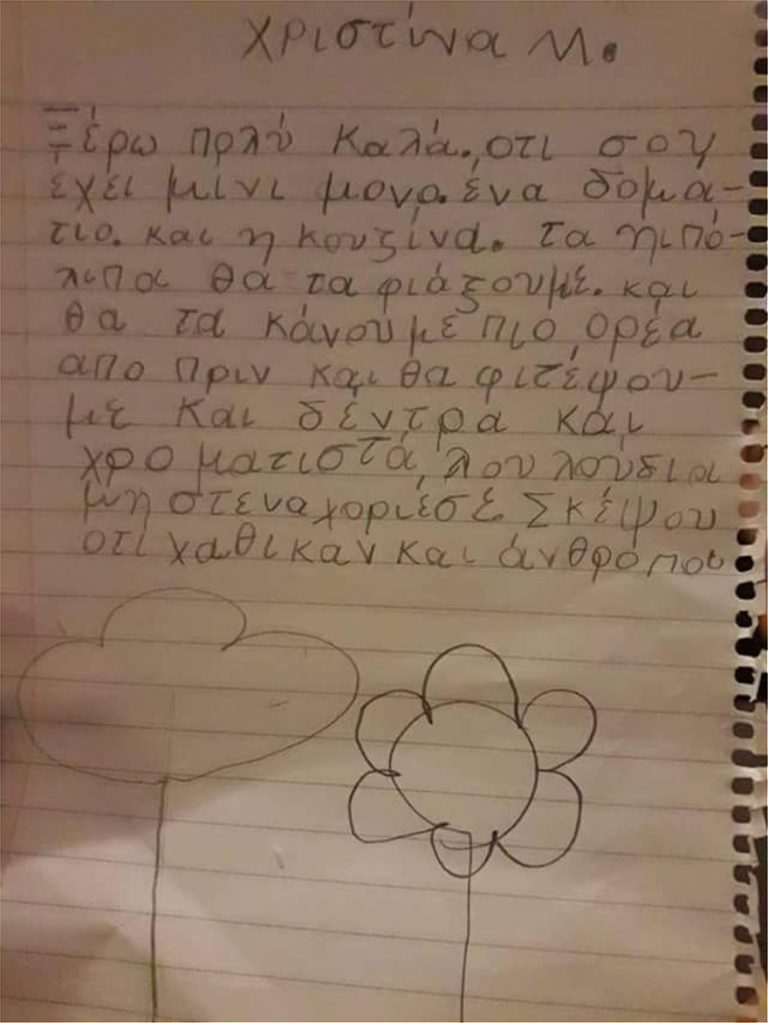 Χριστίνα Μ.
Ξέρω πολύ καλά. οτι σου
έχει μινι μονο. ένα δομά-
τιο. και η κουζίνα. τα ηιπό-
λιπα θα τα φιάξουμέ. και
θα τα κάνουμέ πιο ορέα
απο πριν και θα φιτέψου-
με και δέντρα και
χρο ματιστά λουλούδια
μη στεναχοριέσε. Σκέψου
οτι χαθικαν και άνθρόποι